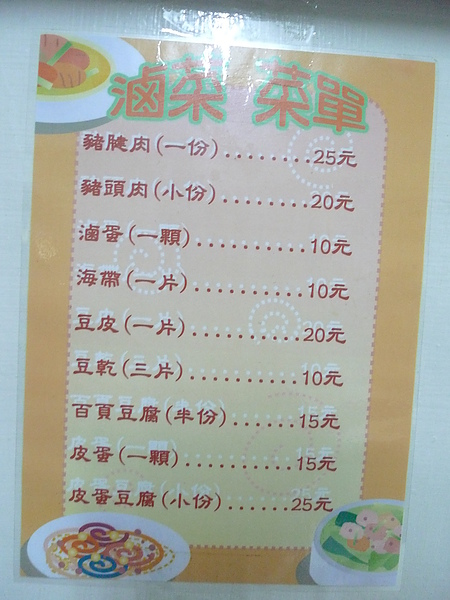 滷菜 菜單
豬腱肉(一份)........25元
豬頭肉(小份)........20元
滷蛋(一顆)..........10元
海帶(一片)..........10元
豆皮(一片)..........20元
豆乾(三片)..........10元
百頁豆腐(半份)......15元
皮蛋(一顆)..........15元
皮蛋豆腐(小份)......25元